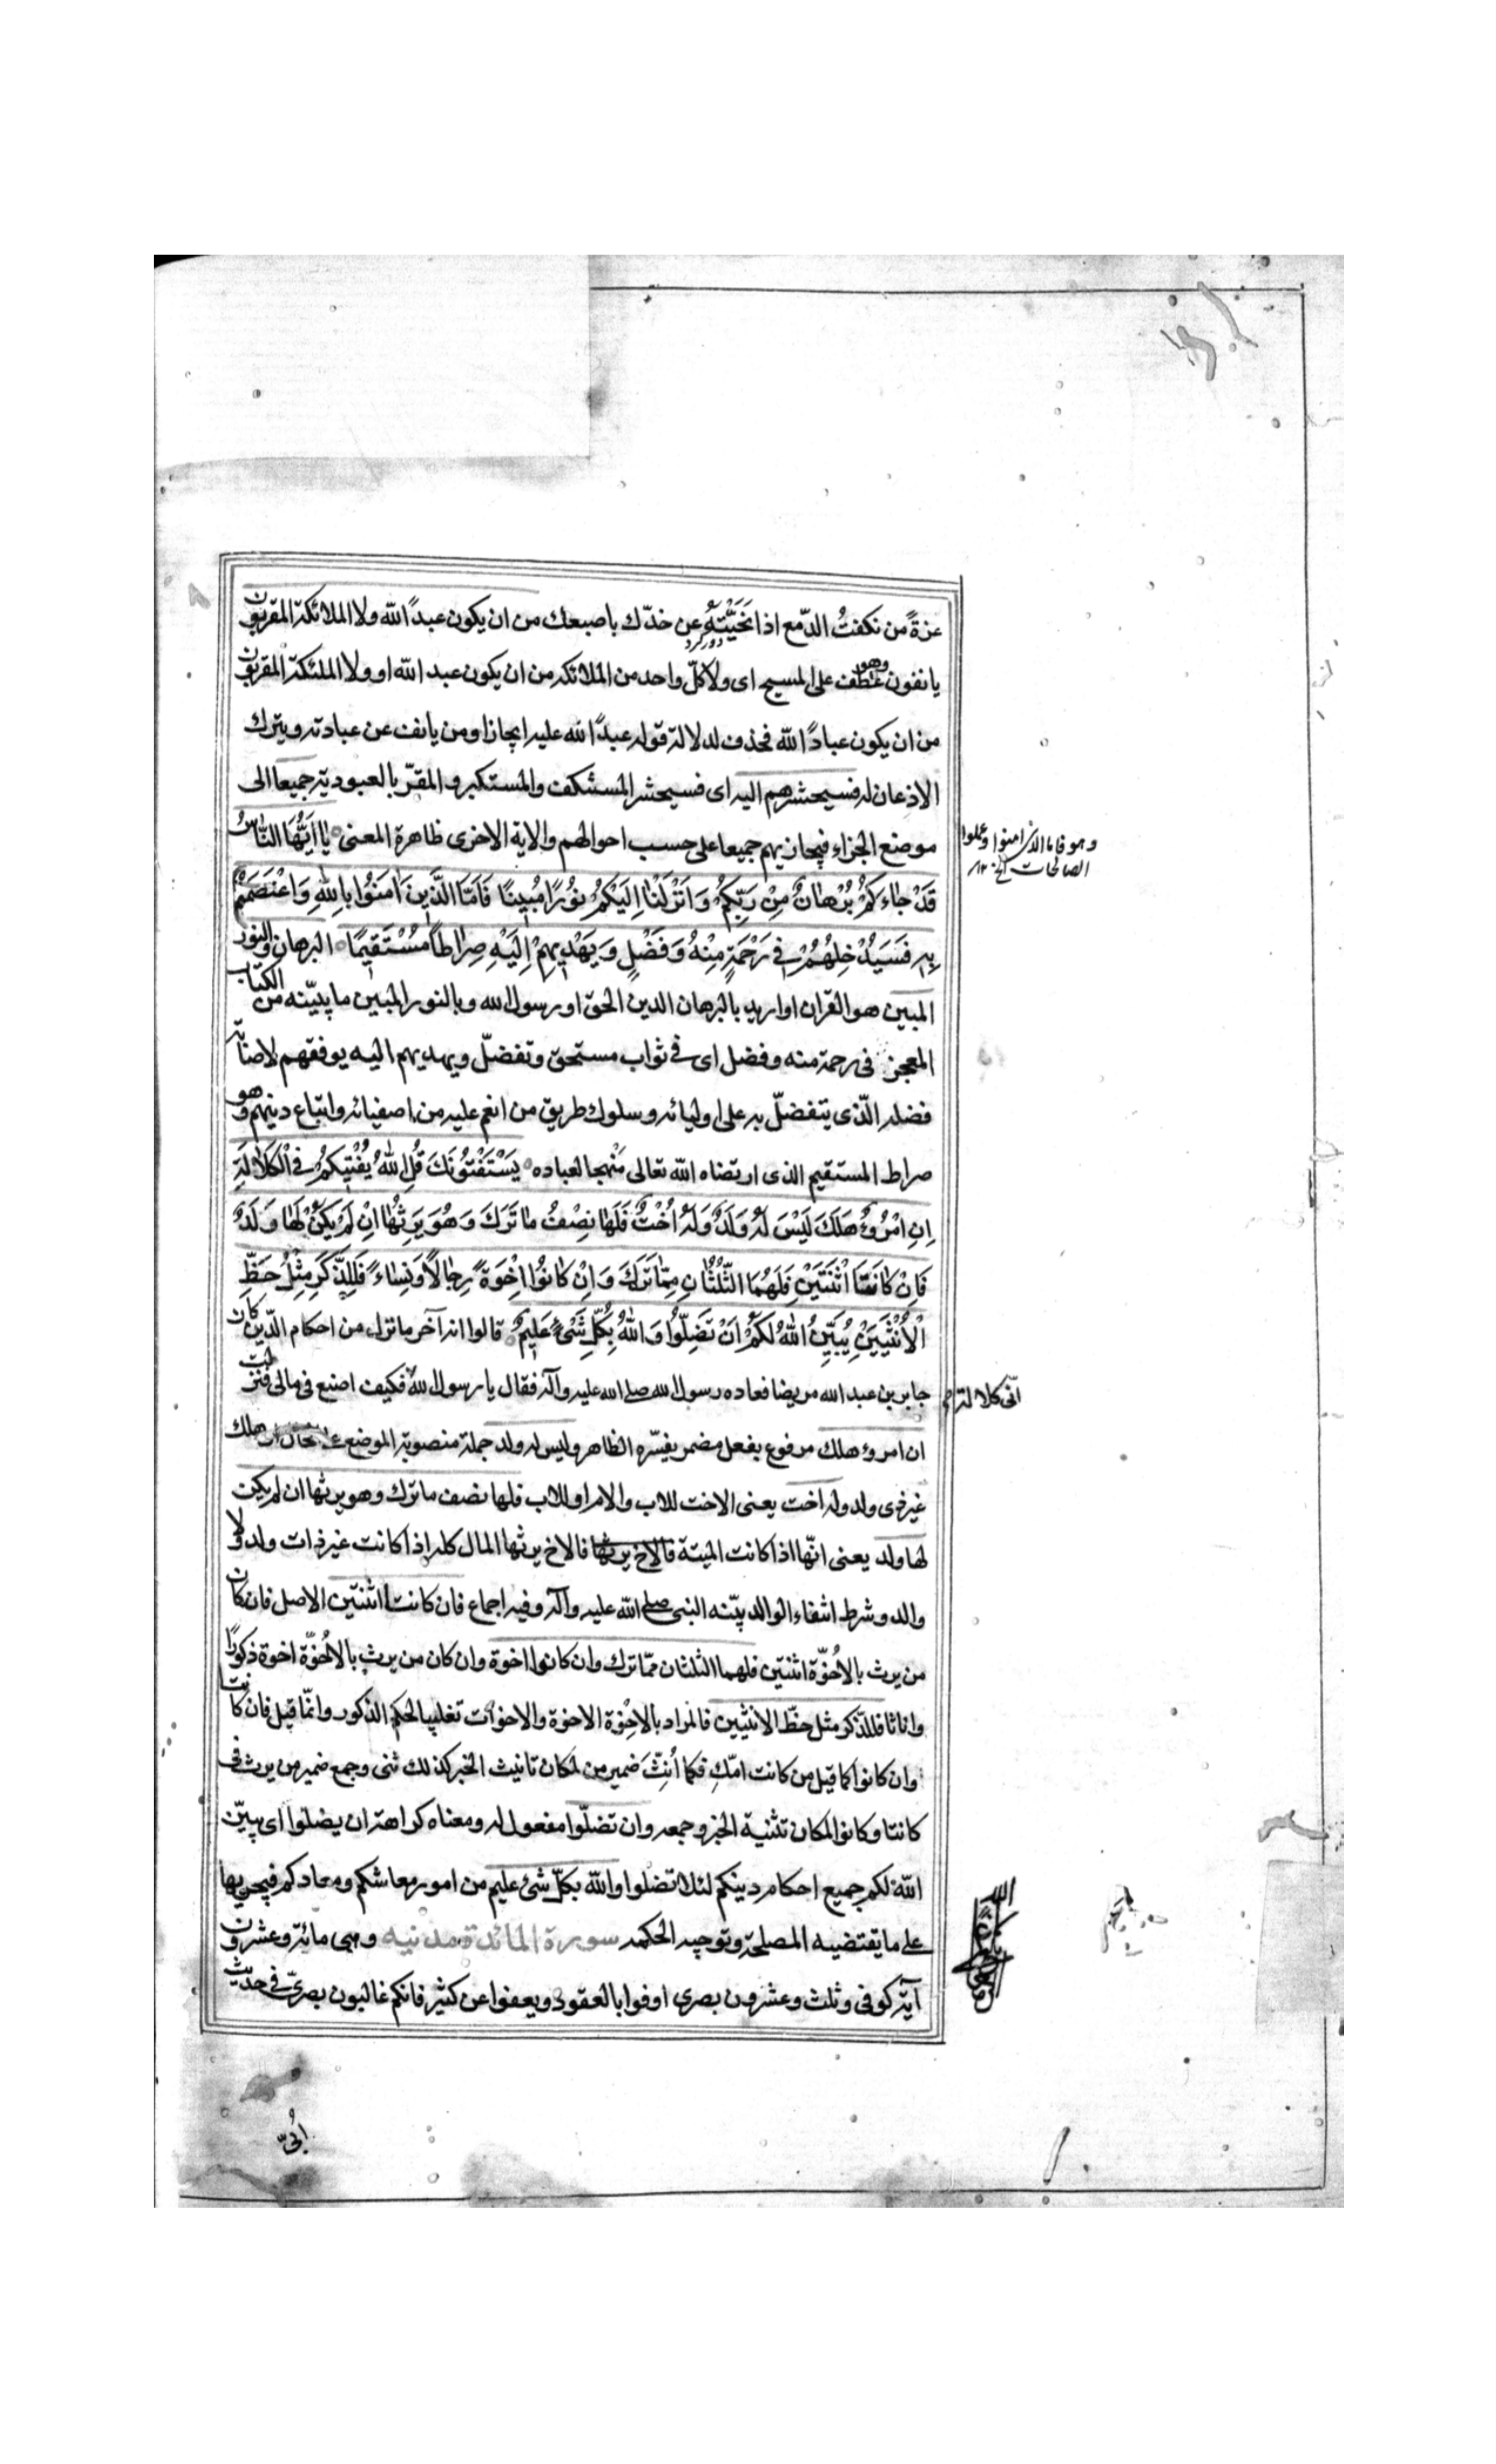 عزة من نكفتُ الدّمع اذا نَحَّيْتَهُ عن خدّك باصبعك من ان يكون عبداً لله ولا الملائكة المقربون
دور كرد
يانفون وهو عطف على المسيح اى ولا كلّ واحد من الملائكة من ان يكون عبد الله او ولا الملئكة المقربون
من ان يكون عباداً لله فحذف لدلالة قوله عبداً لله عليه ايجازا ومن يانف عن عبادته ويترك
الاذعان له فسيحشرهم اليه اى فسيحشر المستنكف والمستكبر والمقرّ بالعبودية جميعا الى
موضع الجزاء فيجازيهم جميعا على حسب احوالهم والاية الاخرى ظاهرة المعنى يا اَيُّهَا النّاسُ
وهو فاما الذين امنوا وعملوا
الصالحات الخ ١٢
قَدْ جاءَكُمْ بُرْهانٌ مِنْ رَبِّكُمْ وَاَنْزَلْنا اِلَيْكُمْ نُورًا مُبِينًا فَاَمَّا الَّذِينَ اٰمَنُوا بِاللهِ وَاعْتَصَمُوا
بِهِ فَسَيُدْخِلُهُمْ فِى رَحْمَةٍ مِنْهُ وَفَضْلٍ وَيَهْدِيهِمْ اِلَيْهِ صِراطًا مُسْتَقِيمًا البرهان والنور
المبين هو القران او اريد بالبرهان الدين الحق او رسول الله وبالنور المبين ما يبيّنه من الكتاب
المعجز فى رحمة منه وفضل اى فى ثواب مستحق وتفضّل ويهديهم اليه يوفقهم لاصابة
فضله الّذى يتفضّل به على اوليائه وسلوك طريق من انعم عليه من اصفيائه واتباع دينهم وهو
صراط المستقيم الذى ارتضاه الله تعالى منهجا لعباده يَسْتَفْتُونَكَ قُلِ اللهُ يُفْتِيكُمْ فِى الْكَلالَةِ
اِنِ امْرُؤٌ هَلَكَ لَيْسَ لَهُ وَلَدٌ وَلَهُ اُخْتٌ فَلَها نِصْفُ ما تَرَكَ وَهُوَ يَرِثُها اِنْ لَمْ يَكُنْ لَها وَلَدٌ
فَاِنْ كانَتَا اثْنَتَيْنِ فَلَهُمَا الثُّلُثانِ مِمّا تَرَكَ وَاِنْ كانُوا اِخْوَةً رِجالًا وَنِساءً فَلِلذَّكَرِ مِثْلُ حَظِّ
الْاُنْثَيَيْنِ يُبَيِّنُ اللهُ لَكُمْ اَنْ تَضِلُّوا وَاللهُ بِكُلِّ شَىْءٍ عَلِيمٌ قالوا انه آخر ما نزل من احكام الدّين كان
جابر بن عبد الله مريضا فعاده رسول الله صلى الله عليه وآله فقال يا رسول الله فكيف اصنع فى مالى فنزلت
انّى كلالة
ان امرؤ هلك مرفوع بفعل مضمر يفسّره الظاهر وليس له ولد جملة منصوبة الموضع على الحال اى هلك
غير ذى ولد وله اخت يعنى الاخت للاب والام او للاب فلها نصف ما ترك وهو يرثها ان لم يكن
لها ولد يعنى انّها اذا كانت الميتة فالاخ يرثها فالاخ يرثها المال كله اذا كانت غير ذات ولد ولا
والد وشرط انتفاء الوالد بيّنه النبى صلى الله عليه وآله وفيه اجماع فان كانتا اثنتين الاصل فان كان
من يرث بالاُخوّة اثنتين فلهما الثلثان ممّا ترك وان كانوا اخوة وان كان من يرث بالاُخوّة اخوة ذكورًا
واناثا فللذّكر مثل حظّ الانثيين فالمراد بالاِخْوة الاخوة والاخوات تغليبا لحكم الذكور وانّما قيل فان كانتا
وان كانوا كما قيل من كانت امّك فكما اُنِّثَ ضمير من لمكان تانيث الخبر كذلك ثنى وجمع ضمير من يرث فى
كانتا وكانوا لمكان تثنية الخبر وجمعه وان تضلّوا مفعول له ومعناه كراهة ان يضلوا اى يبيّن
الله لكم جميع احكام دينكم لئلا تضلوا والله بكلّ شئ عليم من امور معاشكم ومعادكم فيجريها
على ما يقتضيه المصلحة وتوجبه الحكمه سورة المائدة مدنيه وهى مائة وعشرون
آية كوفى وثلث وعشرون بصرى اوفوا بالعقود ويعفوا عن كثير فانكم غالبون بصرىّ فى حديث
اُبىّ